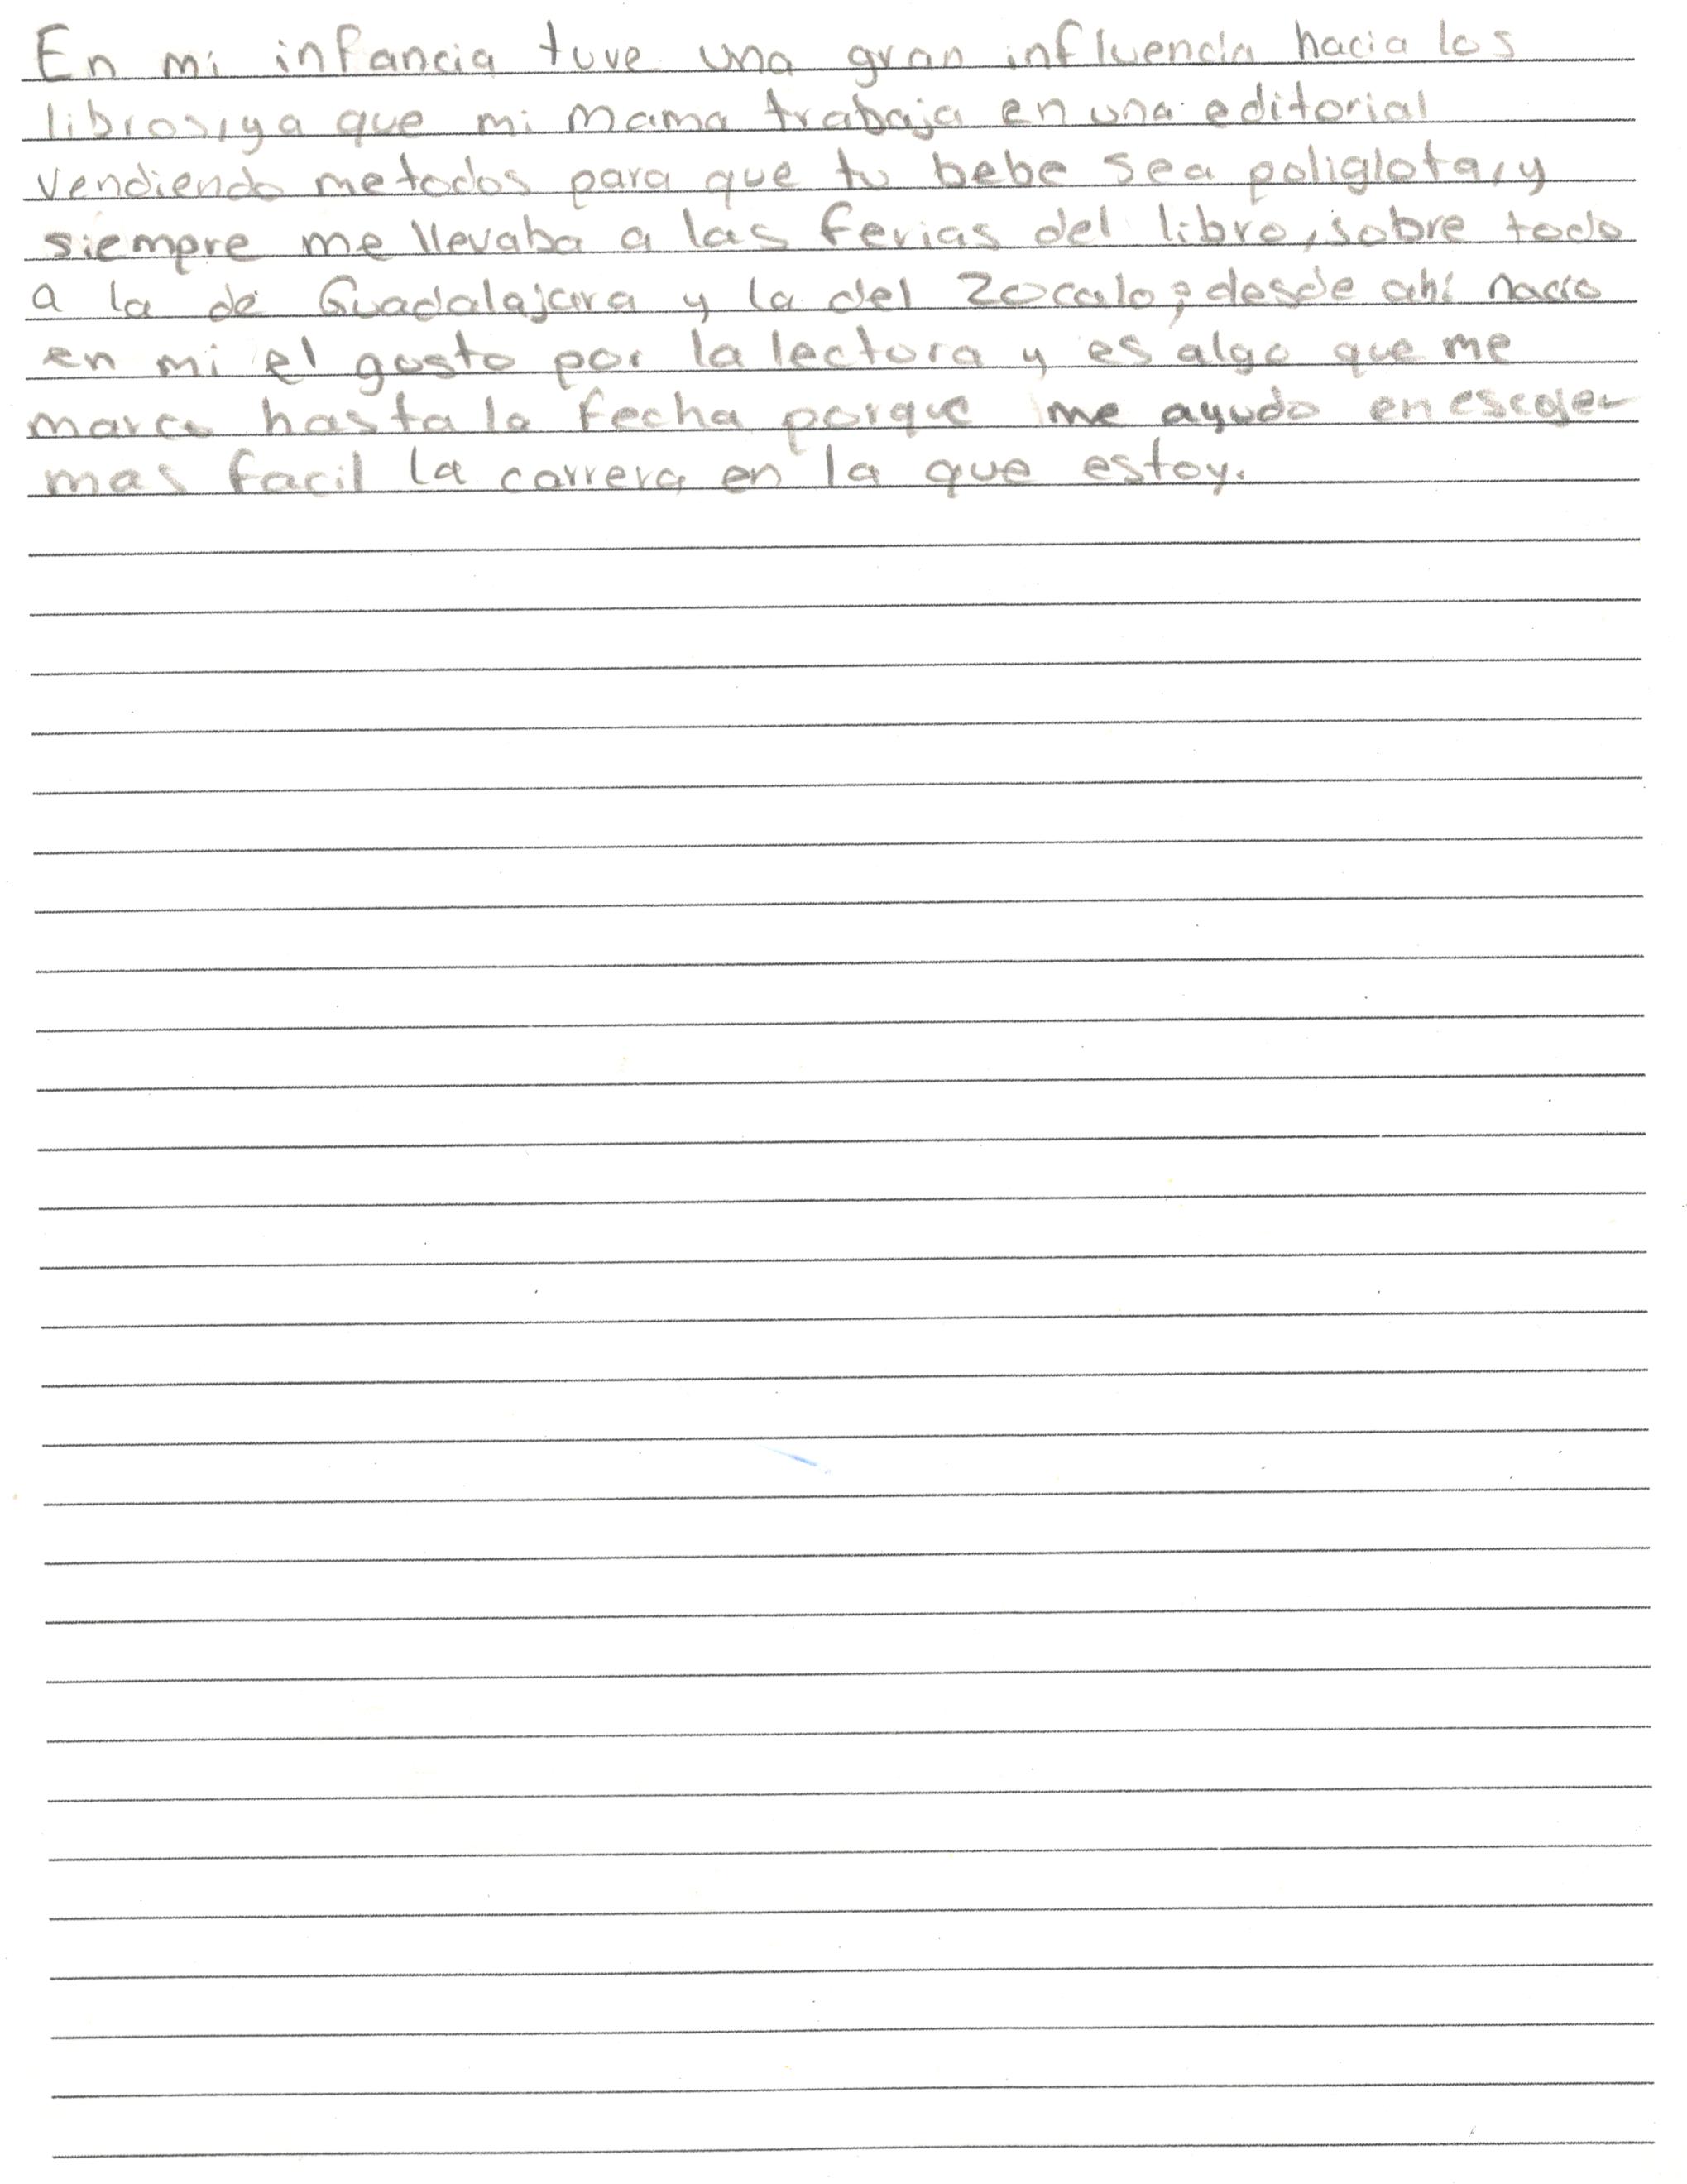 En mi infancia tuve una gran influencia hacia los
libros, ya que mi mama trabaja en una editorial
vendiendo metodos para que tu bebe sea poliglota, y
siempre me llevaba a las ferias del libro, sobre todo
a la de Guadalajara y la del Zocalo; desde ahí nacio
en mi el gusto por la lectura y es algo que me
marco hasta la fecha porque me ayudo en escojer
mas facil la carrera en la que estoy.